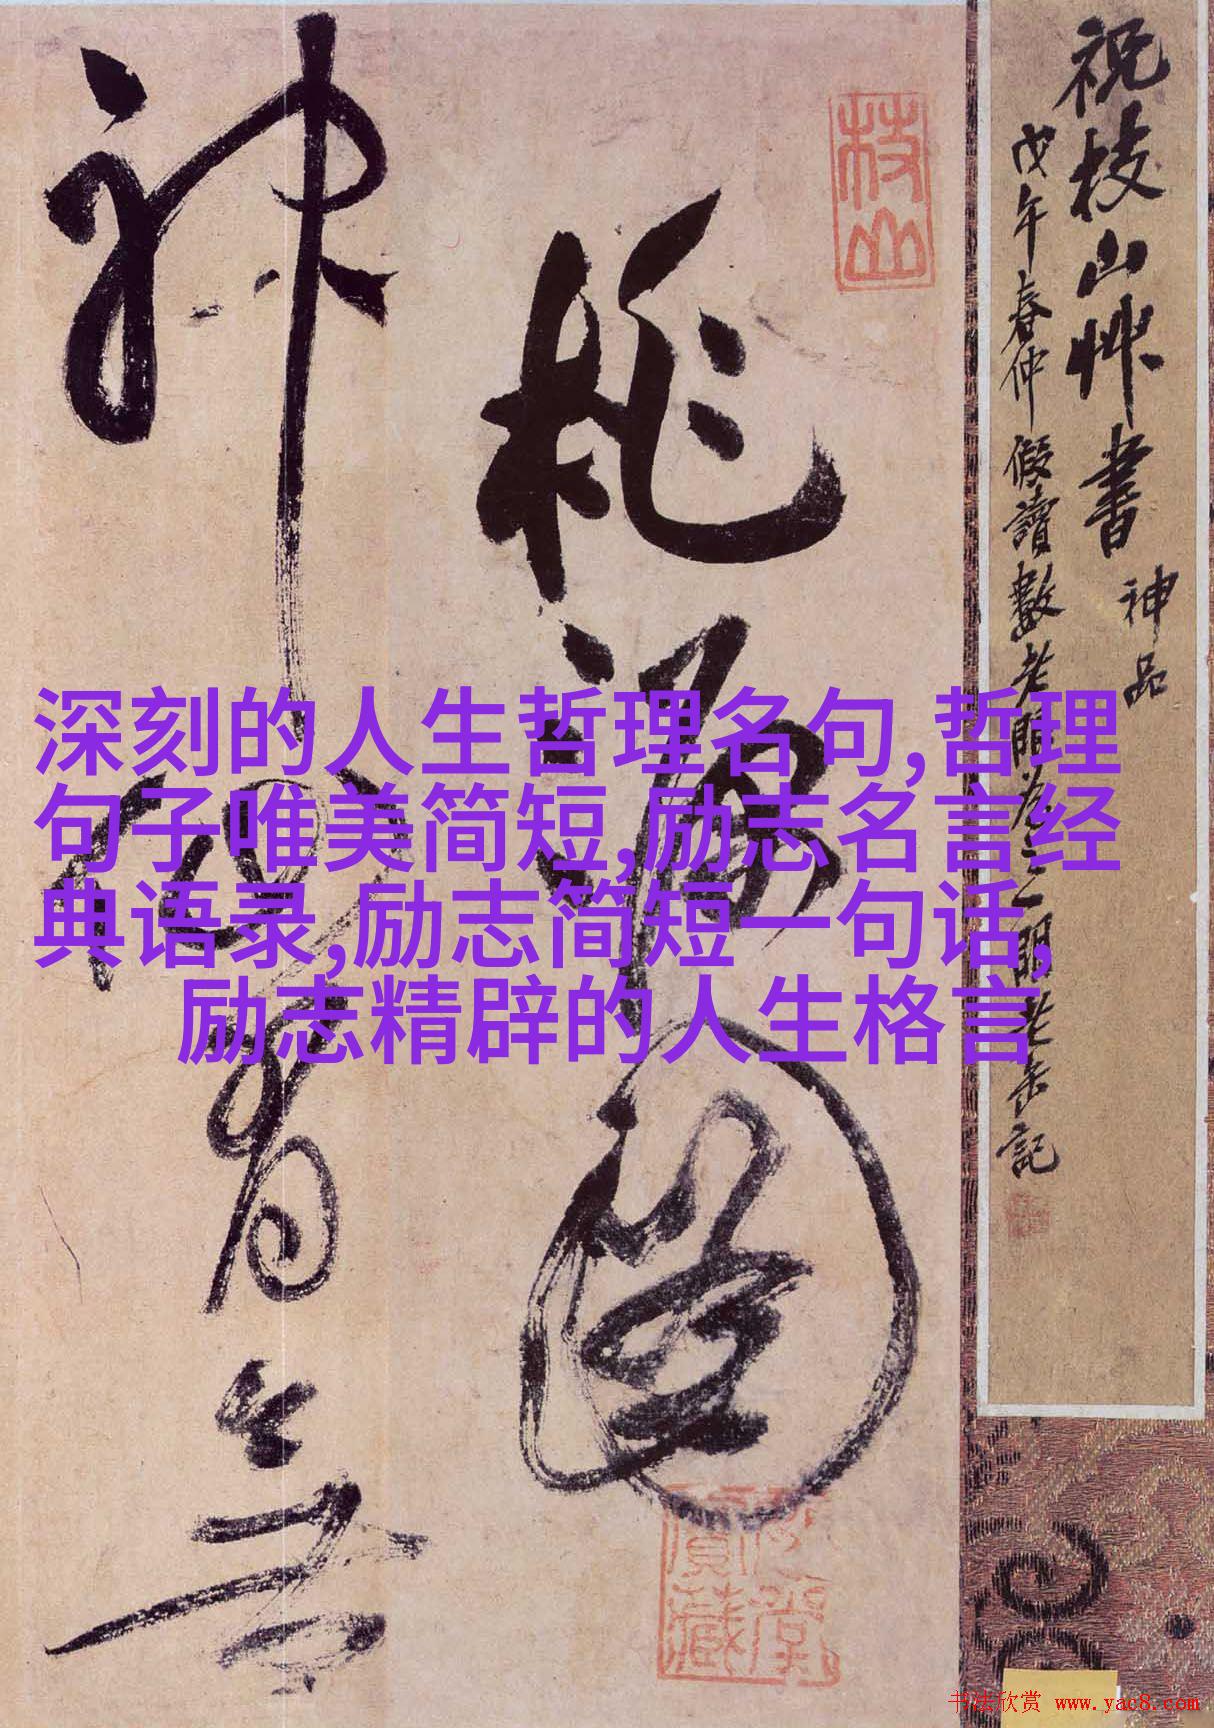 祝枝山艸書
神品
戊午春仲假讀數
記
枝山
桃源圖
神仙有無
深刻的人生哲理名句,哲理
句子唯美简短,励志名言经
典语录,励志简短一句话,
励志精辟的人生格言
书法欣赏 www.yac8.com